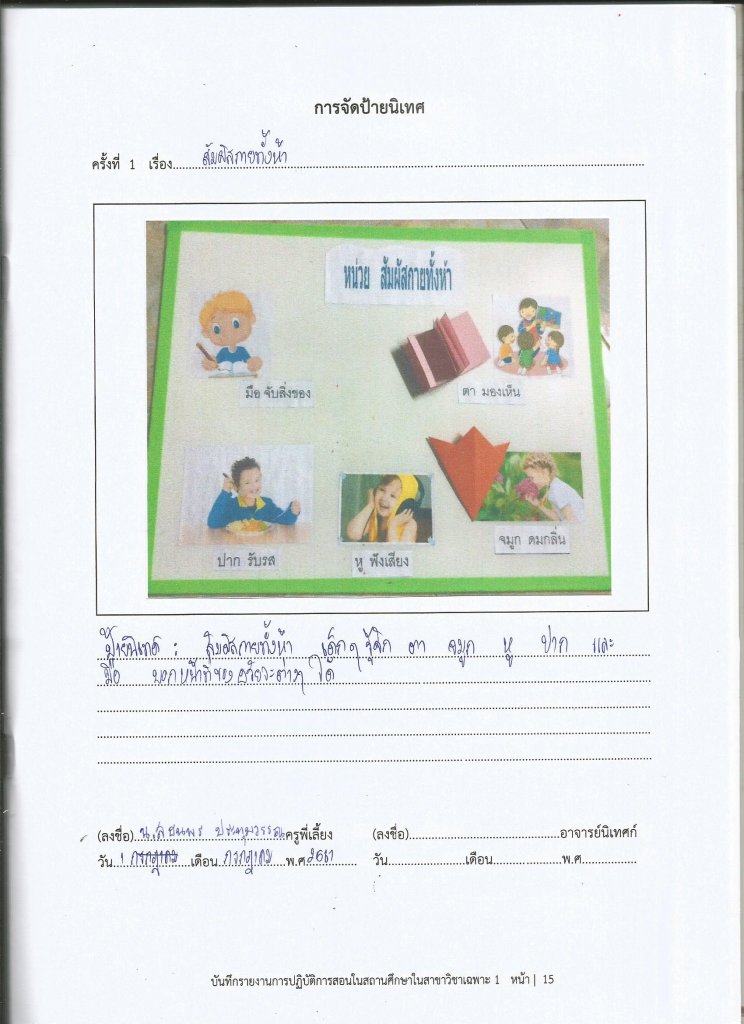 การจัดป้ายนิเทศ
ครั้งที่ 1 เรื่อง สัมผัสกายทั้งห้า
หน่วย สัมผัสกายทั้งห้า
มือ จับสิ่งของ
ตา มองเห็น
ปาก รับรส
หู ฟังเสียง
จมูก ดมกลิ่น
ป้ายนิเทศ : สัมผัสกายทั้งห้า เด็กๆ รู้จัก ตา จมูก หู ปาก และ
มือ บอกหน้าที่ของอวัยวะต่างๆ ได้
(ลงชื่อ) ครูพี่เลี้ยง (ลงชื่อ) อาจารย์นิเทศก์
วัน 1 กรกฎาคม เดือน กรกฎาคม พ.ศ. วัน เดือน พ.ศ
บันทึกรายงานการปฏิบัติการสอนในสถานศึกษาในสาขาวิชาเฉพาะ 1 หน้า | 15